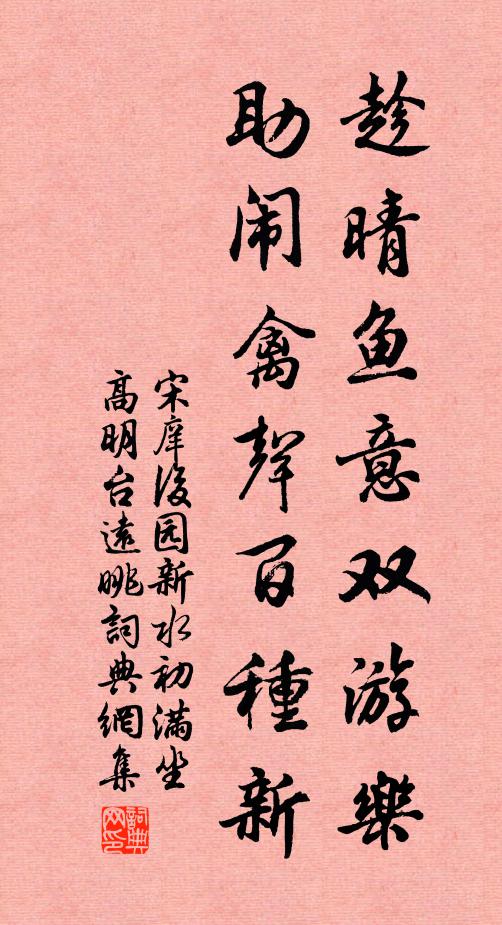 趁晴鱼意双游樂
助闹禽聲百種新
宋庠後园新水初满坐
高明台遠眺詞典網集
詞典网印